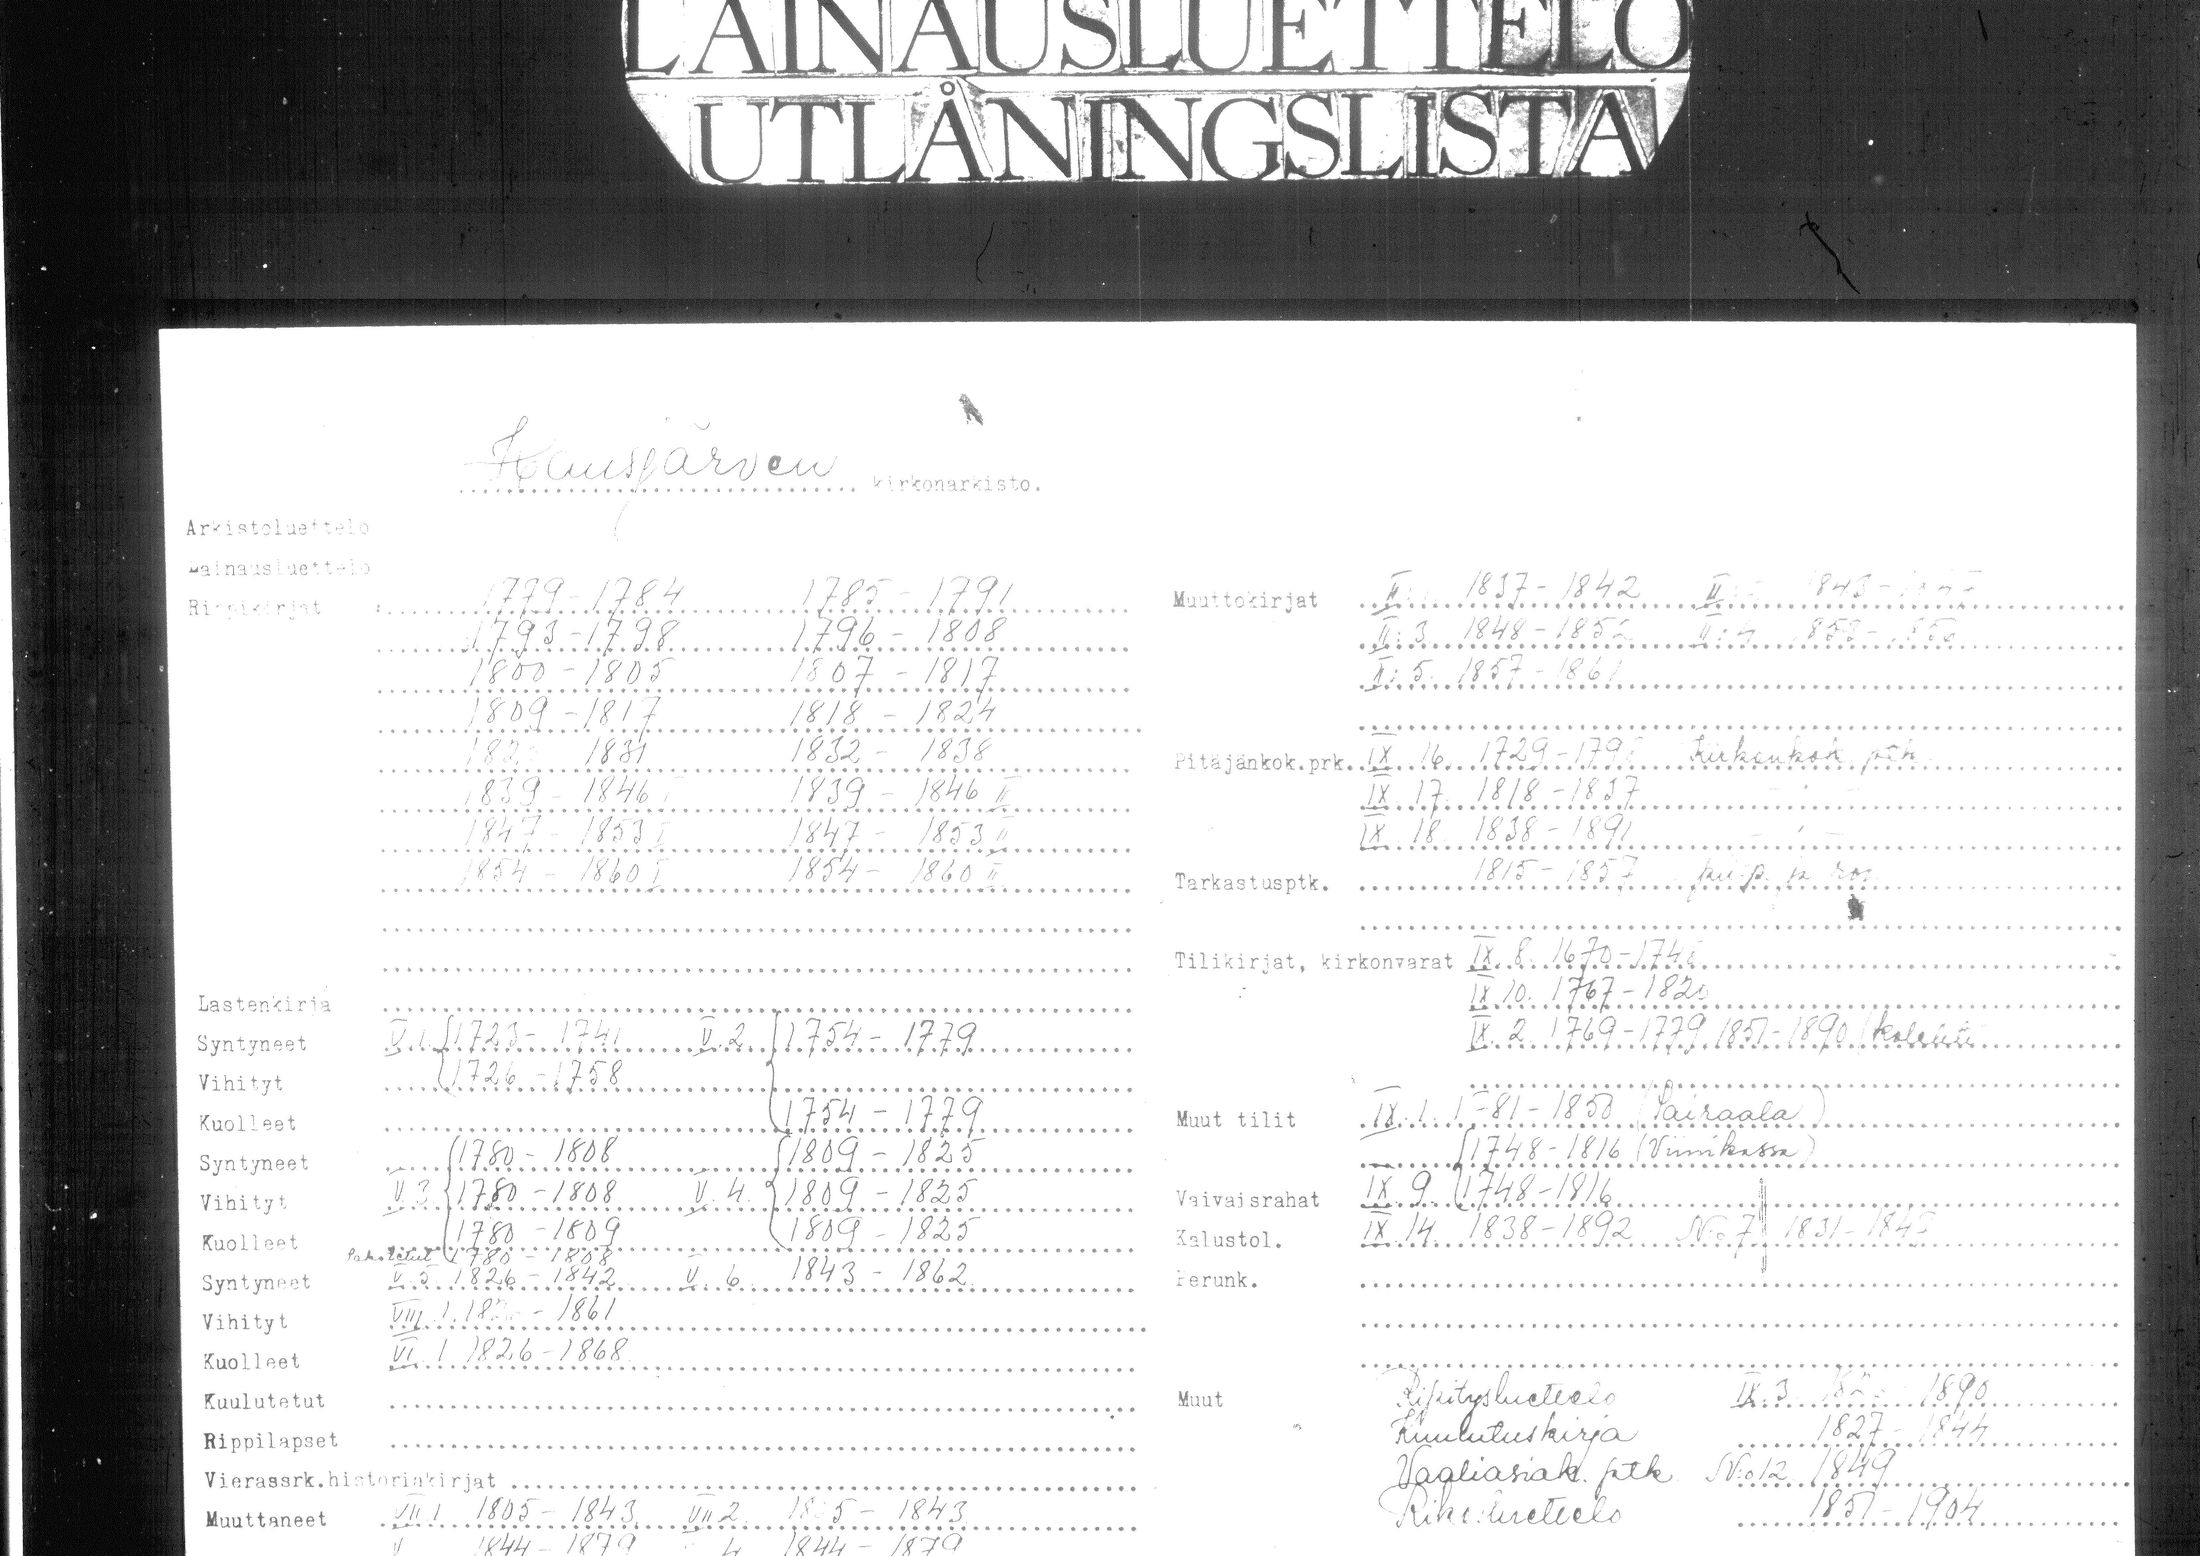 LAINAUSLUETTELO
UTLÅNINGSLISTA
Hausjärven kirkonarkisto.
Arkistoluettelo
Lainausluettelo
Rippikirjat 1779-1784 1785-1791
1793-1798 1796-1808
1800-1805 1807-1817
1809-1817 1818-1824
1831 1832-1838
1839-1846 I 1839-1846 II
1847-1853 I 1847-1853 II
1854-1860 I 1854-1860 II
Lastenkirja
Syntyneet V.1. 1723-1741 V.2. 1754-1779
Vihityt 1726-1758
Kuolleet 1754-1779
Syntyneet 1780-1808 1809-1825
Vihityt V.3. 1780-1808 V.4. 1809-1825
Kuolleet 1780-1809 1809-1825
1780-1808
Syntyneet V.5 1826-1842 V.6. 1843-1862
Vihityt VIII.1. - 1861
Kuolleet VI.1 1826-1868
Kuulutetut
Rippilapset
Vierassrk.historiakirjat
Muuttaneet VII.1 1805-1843 VII.2 - 1843
1844-1879 4 1844-1879
Muuttokirjat II: 1837-1842 II: 1843-
II:3. 1848-1852 II:4.
II:5. 1857-1861
Pitäjänkok.prk. IX 16. 1729- Kirkonkok. ptk.
IX 17. 1818-1837 - " -
IX 18. 1838-1891 - " -
Tarkastusptk. 1815-1857
Tilikirjat, kirkonvarat IX.8. 1670-
IX.10. 1767-
IX.2. 1769-1779, 1851-1890
Muut tilit IX.1. -81-1850 (Sairaala)
1748-1816 (Viinikassa)
Vaivaisrahat IX.9. 1748-1816
Kalustol. IX.14. 1838-1892 N:o 7 1831-
Perunk.
Muut Ripitysluettelo IX.3. - 1890
Kuulutuskirja 1827-1844
Vaaliasiak. ptk. N:o 12. 1849
1851-1904